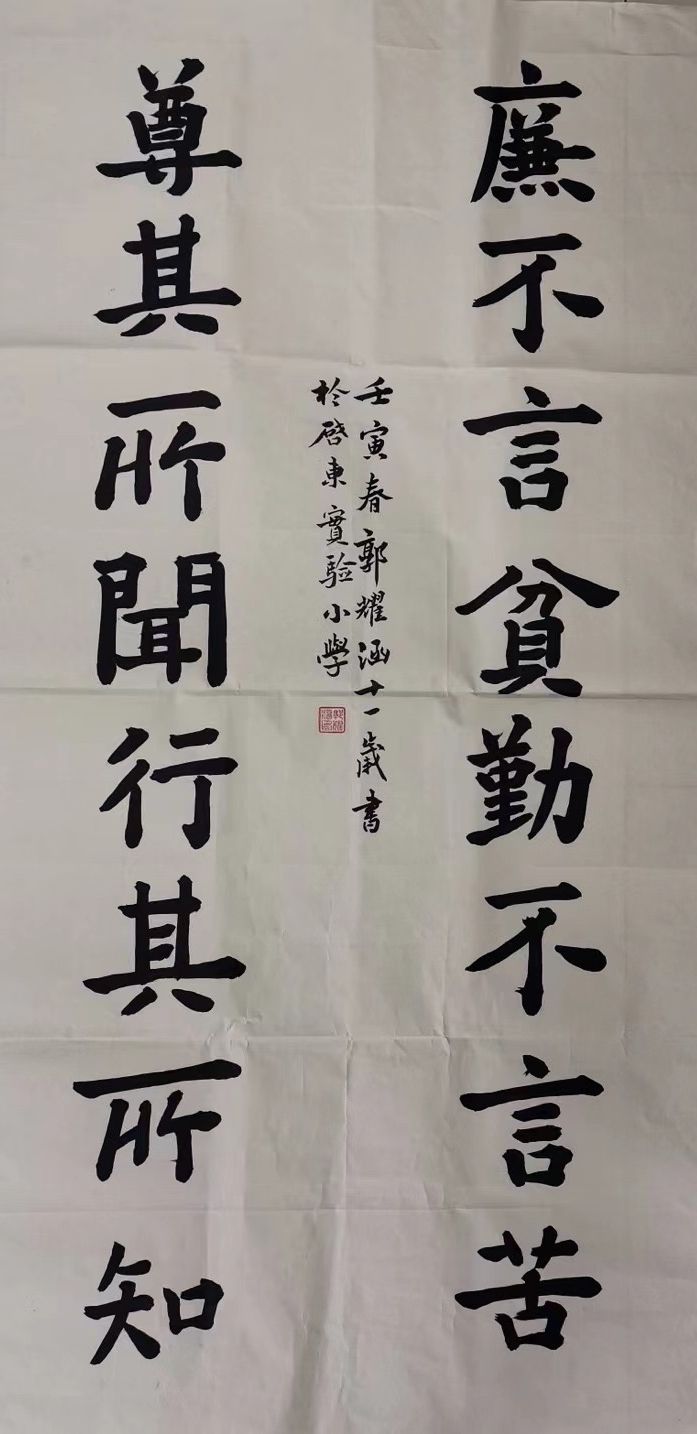 廉不言貧勤不言苦
尊其所聞行其所知
壬寅春郭耀涵十一歲書
於啓東實驗小學